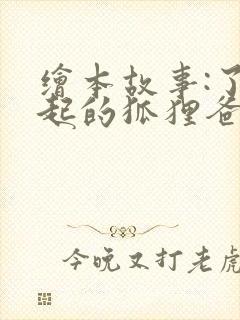 繪本故事:了
起的狐狸爸
今晚又打老虎